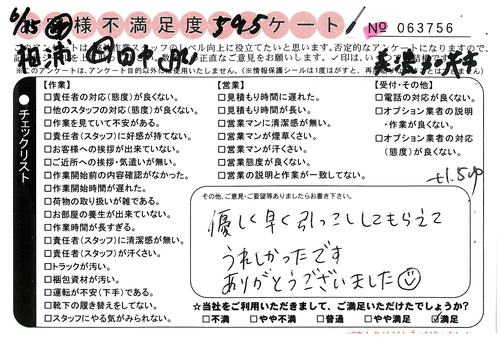 6/25
様不満足度 545 ケート!
No 063756
チェックリスト
【作業】
□責任者の対応(態度)が良くない。
□他のスタッフの対応(態度)が良くない。
□作業を見ていて不安がある。
□責任者(スタッフ)に好感が持てない。
□お客様への挨拶が出来ていない。
□ご近所への挨拶・気遣いが無い。
□作業開始前の内容確認がなかった。
□作業開始時間が遅れた。
□荷物の取り扱いが雑である。
□お部屋の養生が出来ていない。
□作業時間が長すぎる。
□責任者(スタッフ)に清潔感が無い。
□責任者(スタッフ)が汗くさい。
□トラックが汚い。
□梱包資材が汚い。
□運転が不安(下手)である。
□靴下の履き替えをしてない。
□スタッフにやる気がみられない。
【営業】
□見積もり時間に遅れた。
□見積もり時間が長い。
□営業マンに清潔感が無い。
□営業マンが煙草くさい。
□営業マンが汗くさい。
□営業態度が良くない。
□営業の説明と作業が一致してない。
【受付・その他】
□電話の対応が良くない。
□オプション業者の説明
・作業が良くない。
□オプション業者の対応
(態度)が良くない。
+1.5up
その他、ご意見・ご要望等ありましたらお書き下さい。
優しく早く引っこししてもらえて
うれしかったです
ありがとうございました
☆当社をご利用いただきまして、ご満足いただけたでしょうか?
□不満 □やや不満 □普通 □やや満足 ☑満足